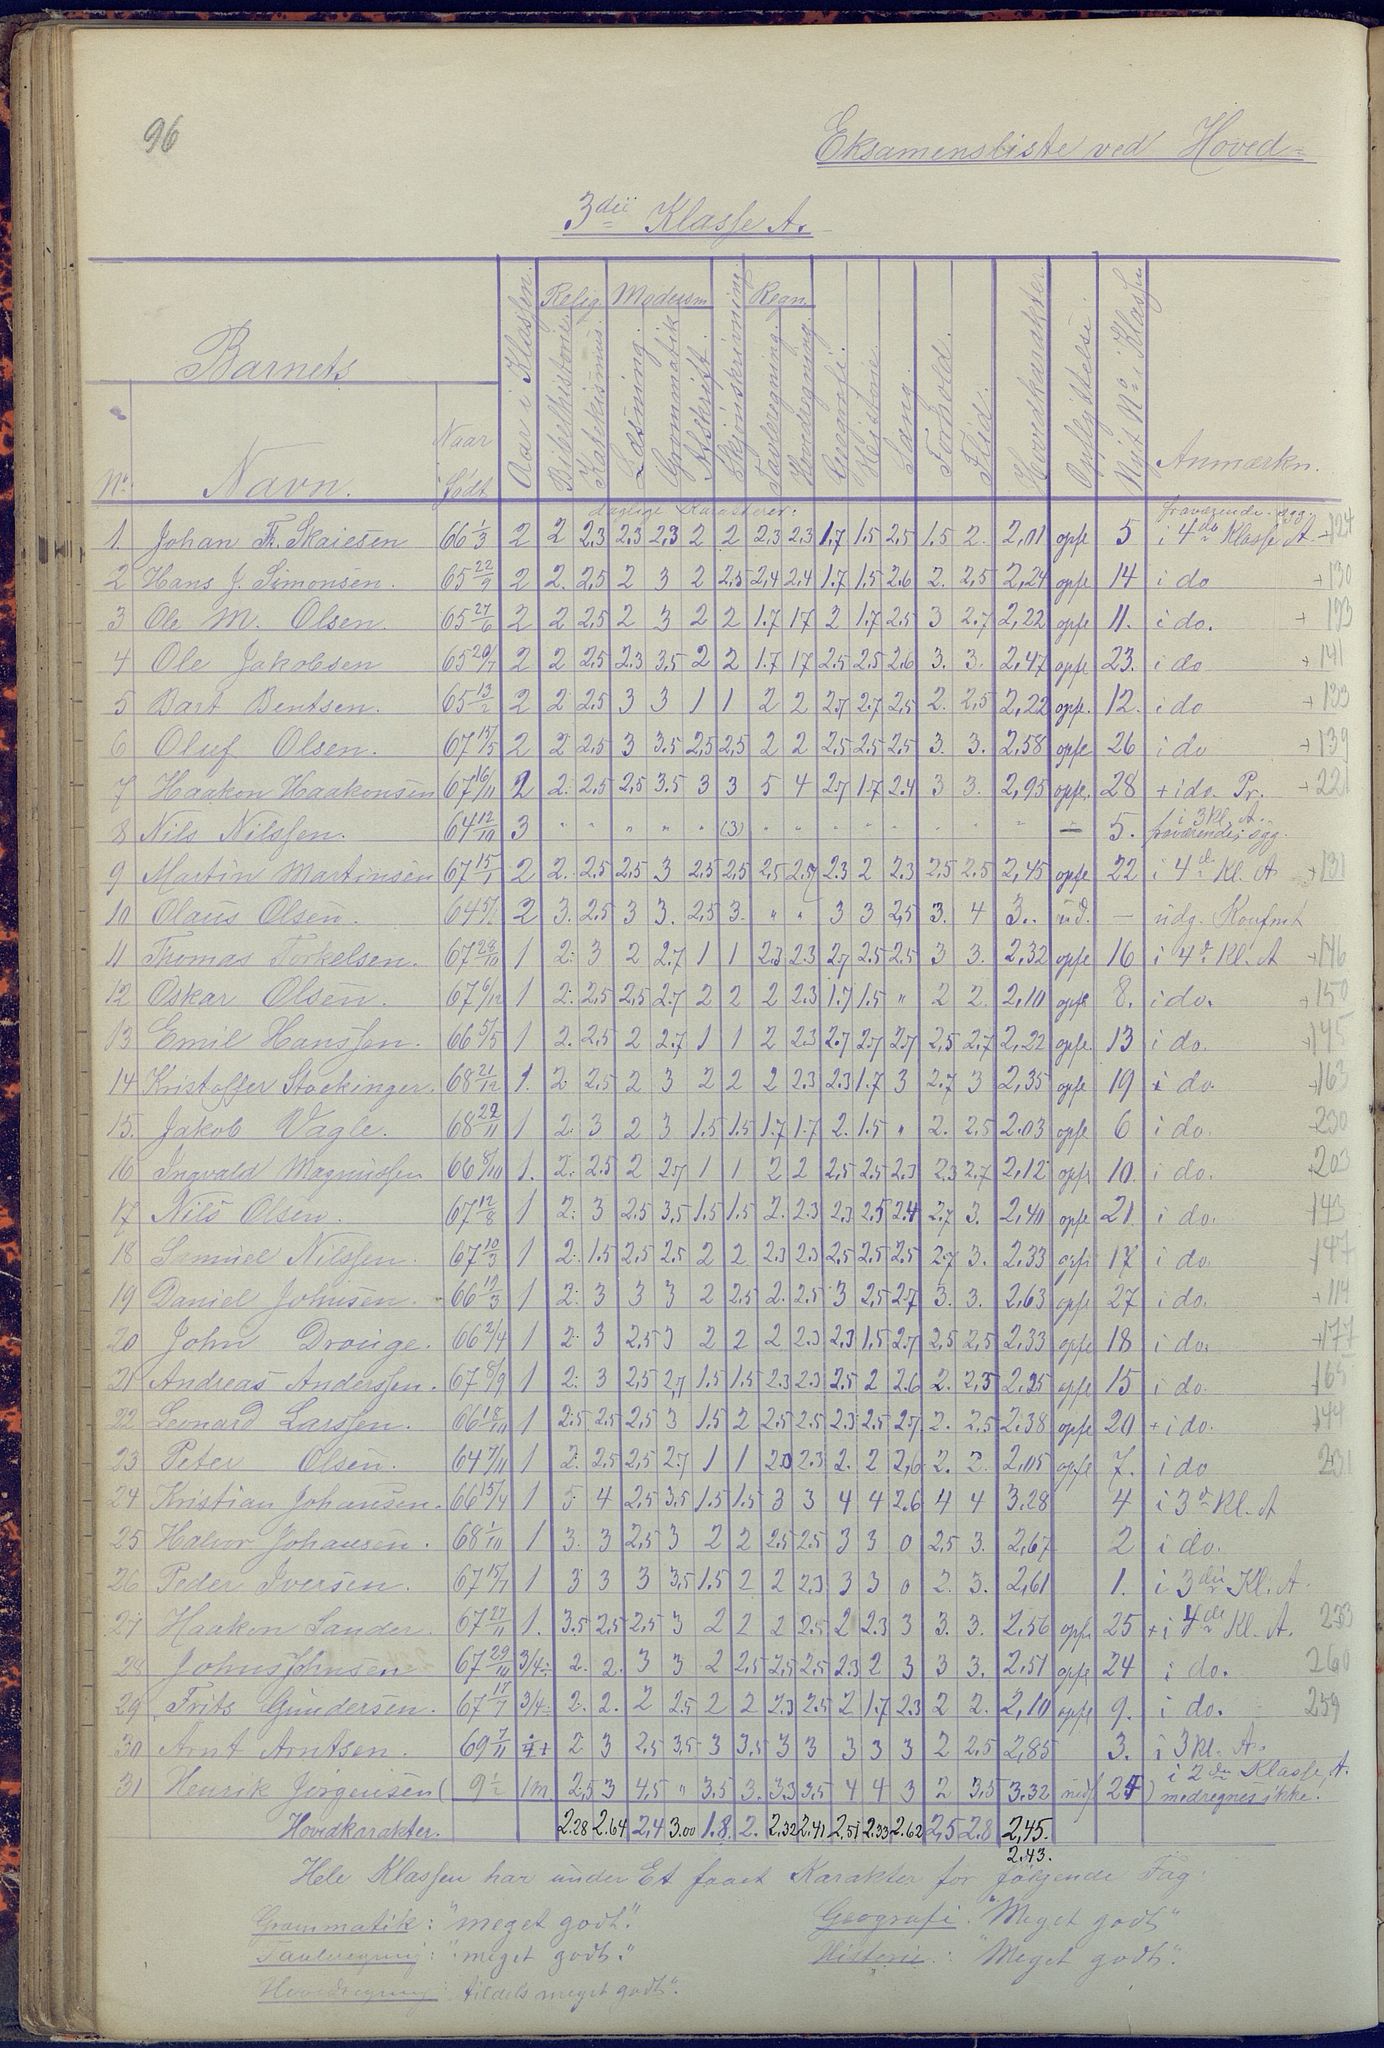 96
Eksamensliste ved Hoved-
3die Klasse A.
Barnets
No. Navn. Naar Født Aar i Klassen. Relig. Bibelhistorie. Katekismus. Modersm. Læsning. Grammatik. Afskrift. Skjönskrivning. Regn. Tavleregning. Hovedregning. Geografi. Historie. Sang. Forhold. Flid. Hovedkarakter. Opflyttelse. Nyt No i Klassen Anmærkn.
daglige Karakterer. fraværende
1. Johan Th. Skaiesen 66 1/3 2 2 2,3 2,3 2,3 2 2 2,3 2,3 1.7 1.5 2,5 1.5 2. 2,01 opfl 5 i 4de Klasse A. +124
2 Hans J. Simonsen. 65 22/9 2 2. 2,5 2 3 2 2,5 2,4 2,4 1.7 1.5 2.6 2. 2,5 2,24 opfl 14 i do +130
3 Ole M. Olsen 65 27/6 2 2 2,5 2 3 2 2 1.7 17 2 1.7 2.5 3 2.7 2,22 opfl 11. i do. + 193
4 Ole Jakobsen 65 20/7 2 2 2.5 2.3 3,5 2 2 1.7 17 2.5 2.5 2.6 3. 3. 2,47 opfl 23. i do +141
5 Bart Bentsen. 65 13/2 2 2 2.5 3 3 1 1 2 2 2.7 2.7 2,5 2. 2,5 2,22 opfl. 12. i do +133
6 Oluf Olsen. 67 13/5 2 2 2,5 3 3.5 2,5 2,5 2 2 2,5 2.5 2,5 3. 3. 2,58 opfl 26 i do +139
7 Haakon Haakonsen 67 16/11 2 2. 2,5 2,5 3.5 3 3 5 4 2.7 1.7 2.4 3 3. 2,95 opfl. 28 + i do Pr. +221
8 Nils Nilssen. 64 12/10 3 " " " " " (3) " " " " " " " " — 5. i 3 Kl. A. fraværende
9 Martin Martinsen 67 15/1 2 2. 2.5 2,5 3 2,5 2,5 2,5 2.5 2.3 2 2,3 2,5 2.5 2,45 opfl 22 i 4de Kl. A +131
10 Olaus Olsen. 64 5/ 2 3. 2,5 3 3. 2,5 3. " " 3 3 2,5 3. 4 3.. ud. — udg. Konfmt
11 Thomas Torkelsen. 67 28/10 1 2. 3 2 2.7 1 1 2.3 2.3 2.7 2.5 2.5 3 3. 2,32 opfl 16 i 4de Kl. A +146
12 Oskar Olsen. 67 6/12 1 2. 2,5 2,5 2.7 2 2 2 2.3 1.7 1.5 " 2 2. 2,10 opfl 8. i do. +150
13 Emil Hanssen. 66 5/5 1 2. 2,5 2 2.7 1 1 2 2.3 2.7 2.7 2.7 2,5 2,7 2,22 opfl. 13 i do. +145
14 Kristoffer Stockinger. 68 21/12 1. 2 2,5 2 3 2 2 2 2.3 2.3 1.7 3 2.7 3 2,35 opfl 19 i do. 163
15. Jakob Vagle. 68 22/11 1 2. 3 2 3 1.5 1.5 1.7 1.7 2. 1.5 " 2. 2,5 2.03 opfl 6 i do. 230
16 Ingvald Magnussen 66 8/10 1. 2. 2.5 2 2.7 1 1 2 2 2,5 2.5 2.3 2.3 2.7 2,12 opfl 10. i do. 203
17 Nils Olsen. 67 12/8 1 2. 3 2.5 3,5 1.5 1.5 2. 2.3 2.3 2.5 2.4 2.7 3. 2,40 opfl 21 i do. 143
18 Samuel Nilssen. 67 10/3 1 2. 1.5 2,5 2.5 2 2 2.3 2.3 2,5 2,5 2,5 2.7 3. 2,33 opfl 17 i do. 147
19 Daniel Johnsen. 66 17/3 1 2. 3 3 3 2 2,5 2. 2.5 3 2,5 2.7 3. 3. 2,63 opfl 27 i do. +114
20 John Drange. 66 2/4 1 2. 3 2,5 3 2 2 2 2.3 2.3 1.5 2.7 2,5 2,5 2,33 opfl 18 i do. +177
21 Andreas Anderssen. 67 8/9 1 2. 3 2,5 2,7 1.5 1.5 2.3 2.3 2.5 2 2.6 2. 2,5 2,25 opfl 15 i do.
22 Leonard Larssen. 66 18/10 1 2.5 2.5 2,5 3 1.5 2 2.5 2.5 2.3 2.5 2.7 2. 2.5 2.38 opfl 20 + i do. 144
23 Peter Olsen. 64 7/11 1 2. 2,5 2,5 2.7 1 1 2.3 2.3 2. 2 2,6 2. 2. 2,05 opfl 7. i do 231
24 Kristian Johansen. 66 15/4 1 5 4 2.5 3,5 1.5 1.5 3 3 4 4 2.6 4 4 3.28 4 i 3de Kl. A
25 Halvor Johansen. 68 1/10 1 3. 3 2,5 3 2 2 2.5 2.5 3 3 0 2,5 3. 2,67 2 i do.
26 Peder Iversen. 67 15/7 1 3 3 3 3,5 1.5 2 2 2.3 3 3 0 2. 3. 2,61 1. i 3die Kl. A.
27 Haakon Sander. 67 27/11 1. 3.5 2,5 2,5 3 2 2 2 2.5 2 2.3 3 3. 3. 2,56 opfl 25 + i 4de Kl. A. 233
28 Johns Johnsen 67 29/10 3/4 2. 2. 3 3 2 2,5 2,5 2,5 2.3 2 3 3 3. 2,51 opfl 24 i do. 260
29 Frits Gundersen. 67 17/7 3/4 2. 2. 2 2.5 2 2 2.3 2.5 2 1.7 2.3 2 2. 2,10 opfl 9. i do. 259
30 Arnt Arntsen. 69 7/11 2 3 2,5 3,5 3 3,5 3 3 3 3 3 2 2,5 2,85 3. i 3 Kl. A.
31 Henrik Jörgensen ( 9 1/2 1m 2,5 3 4,5 " 3.5 3. 3.3 3,5 4 4 3 2 3,5 3,32 nedf 24 ) i 2den Klasse, A. medregnes ikke.
Hovedkarakter. 2.28 2.64 2,4 3.00 1.8. 2. 2.32 2.41 2,51 2.33 2.62 2,5 2.8 2,45.
2.43.
Hele Klassen har under Et faaet Karakter for følgende Fag:
Grammatik: "meget godt". Geografi. "Meget godt"
Tavleregning: "meget godt." Historie: "Meget godt".
Hovedregning: tildels meget godt".